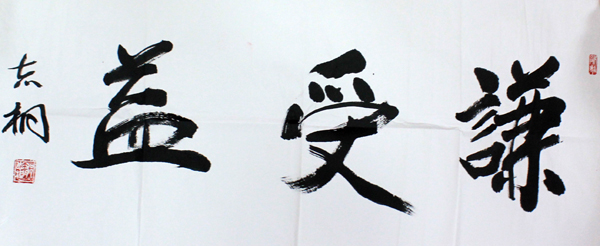 謙受益
志桐